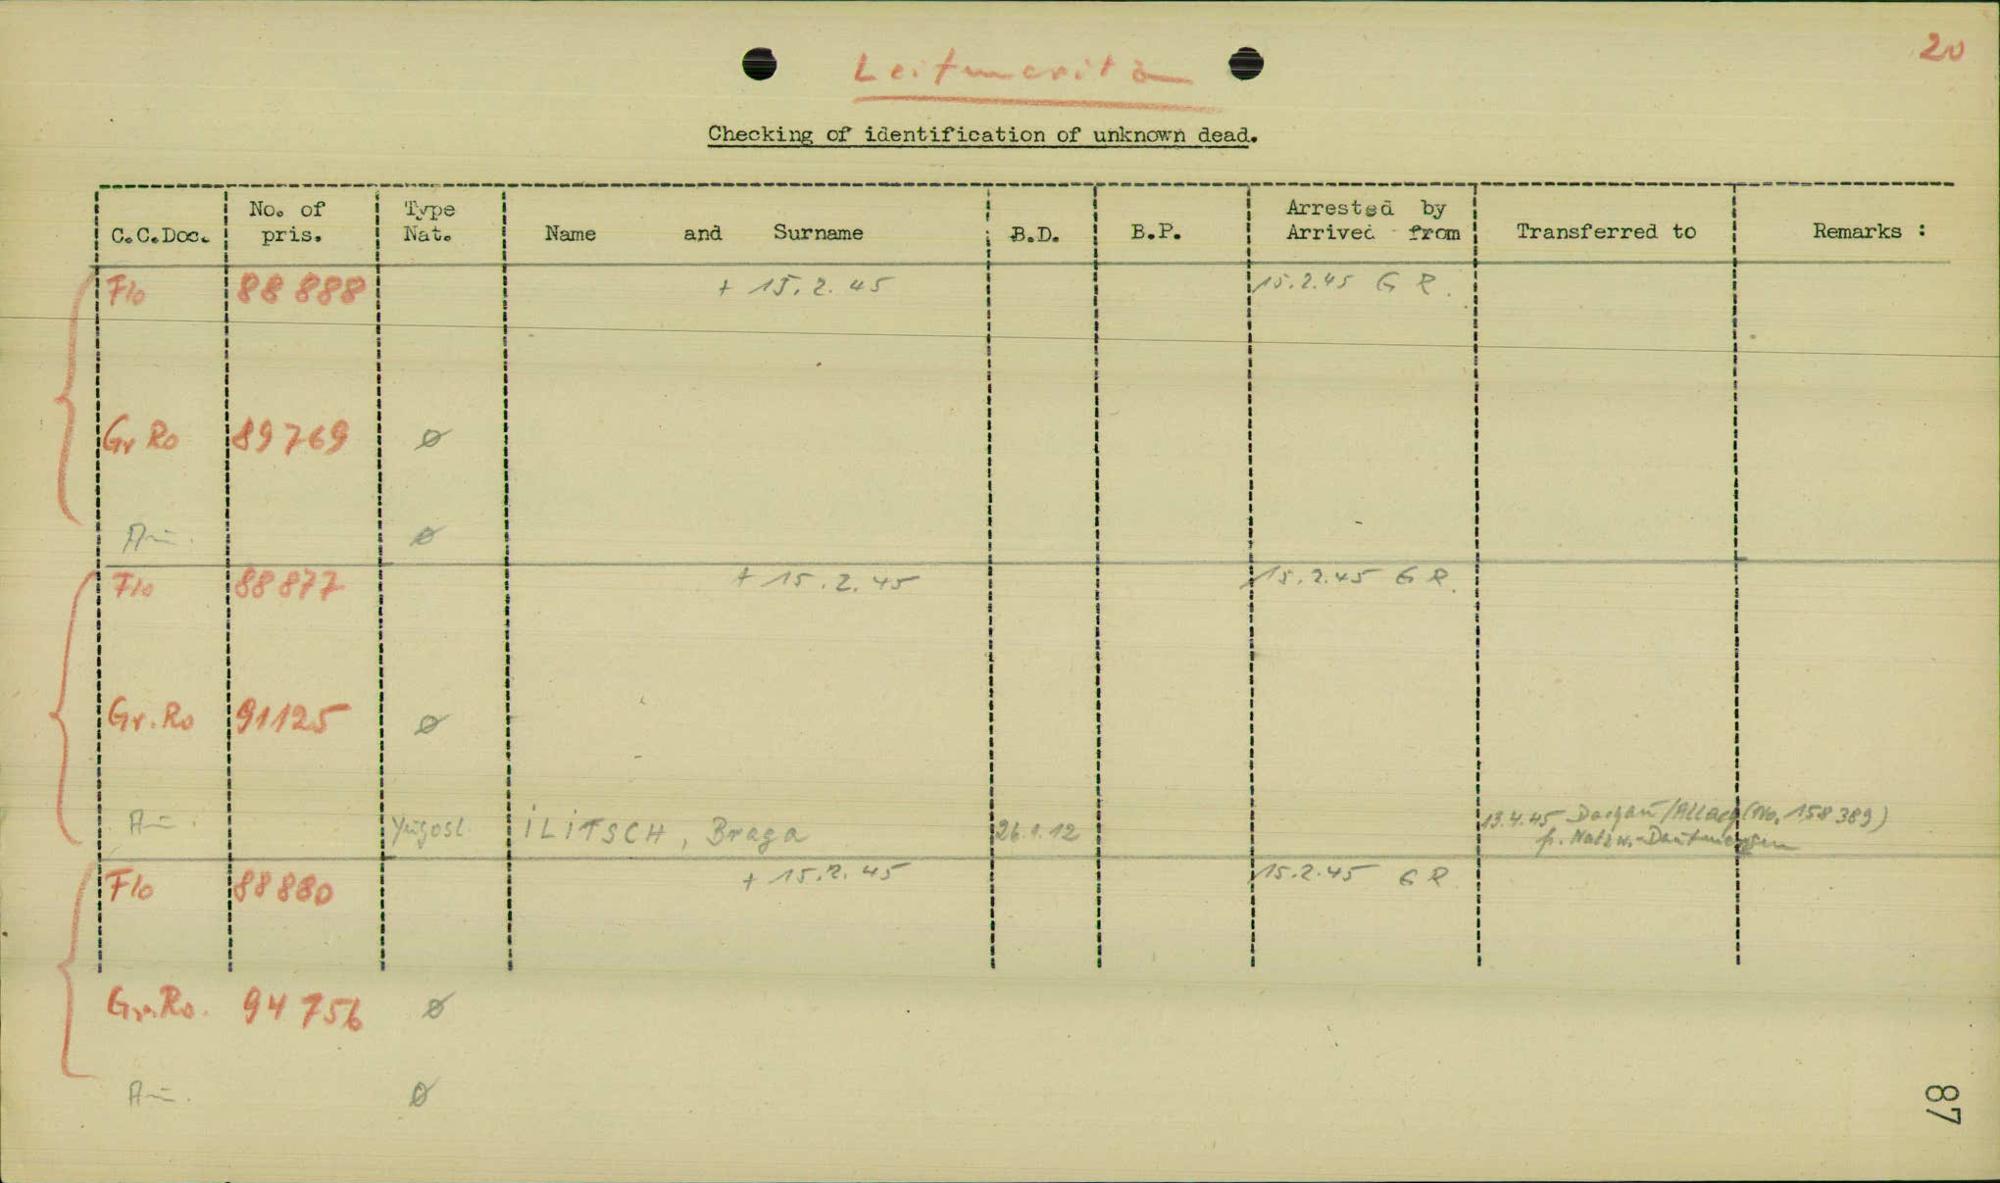 20
Leitmeritz
Checking of identification of unknown dead.
C.C.Doc. No. of pris. Type Nat. Name and Surname B.D. B.P. Arrested by Arrived from Transferred to Remarks :
Flo 88 888 + 15.2.45 15.2.45 G R.
Gr Ro 89769 ø
Au. ø
Flo 88877 + 15.2.45 15.2.45 G R.
Gr. Ro 91125 ø
Au. Yugosl. ILITSCH, Braga 26.1.12 13.4.45 Dachau/Allach (No. 158 389)
fr. Natzw.-Dautmergen
Flo 88880 + 15.2.45 15.2.45 G R
Gr.Ro. 94 756 ø
Au. ø
87